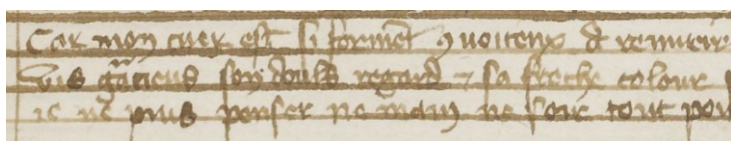 Car mon cuer est si forment quoiteux de reuueir
vis gracieus son douls regard et sa freche colour
ie ne puis penser ne main ne soir tout pour